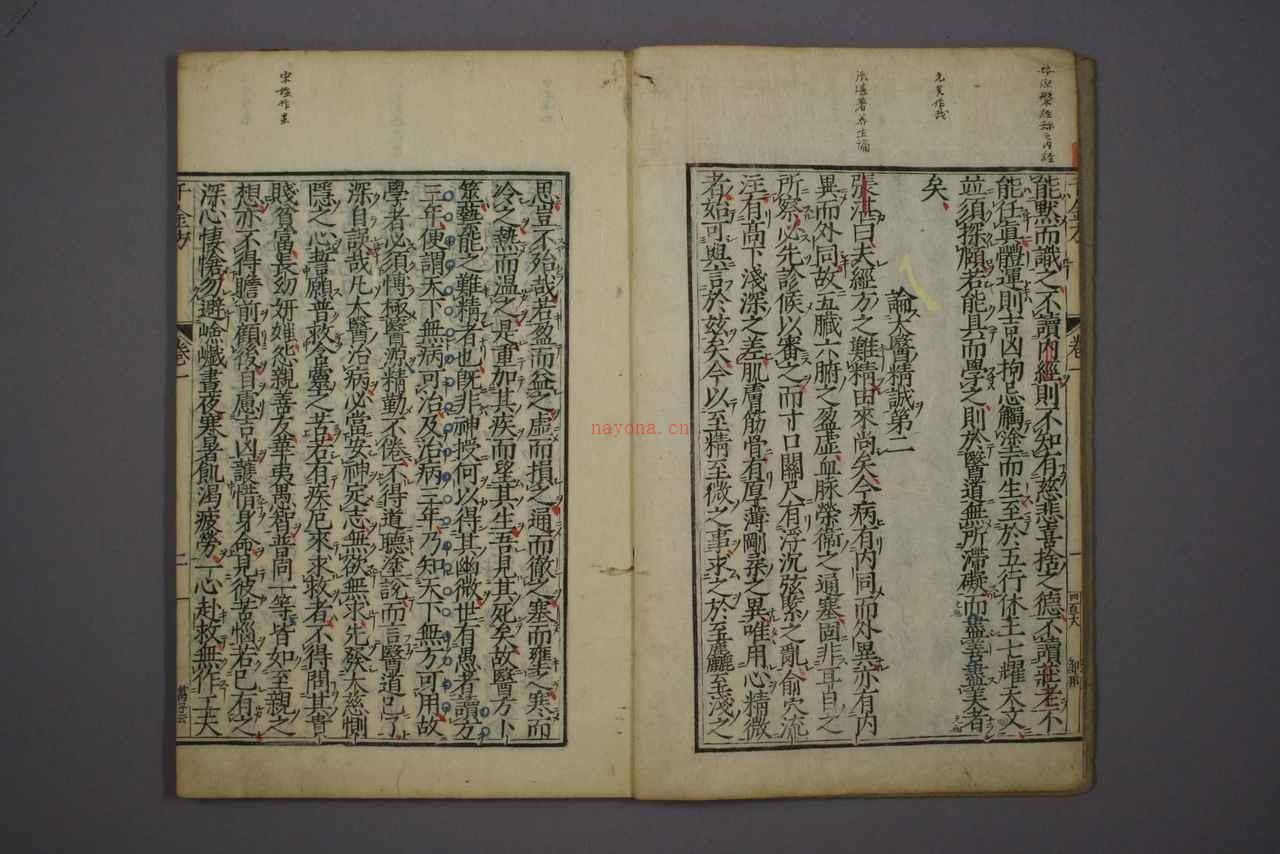 能默而識之不讀內經則不知有慈悲喜捨之德不讀莊老不
能任眞體運則吉凶拘忌觸塗而生至於五行休王七耀天文
並須探賾若能具而學之則於醫道無所滯礙而盡善盡美者
矣
論太醫精誠第二
張湛曰夫經方之難精由來尚矣今病有內同而外異亦有內
異而外同故五臟六腑之盈虛血脉榮衞之通塞固非耳目之
所察必先診候以審之而寸口關尺有浮沉弦緊之亂俞穴流
注有高下淺深之差肌膚筋骨有厚薄剛柔之異唯用心精微
者始可與言於茲矣今以至精至微之事求之於至麤至淺之
卷一
一
張湛著養生論
宋證作盡
思豈不殆哉若盈而益之虛而損之通而徹之塞而壅之寒而
冷之熱而溫之是重加其疾而望其生吾見其死矣故醫方卜
筮藝能之難精者也旣非神授何以得其幽微世有愚者讀方
三年便謂天下無病可治及治病三年乃知天下無方可用故
學者必須博極醫源精勤不倦不得道聽塗說而言醫道已了
深自誤哉凡太醫治病必當安神定志無欲無求先發大慈惻
隱之心誓願普救含靈之苦若有疾厄來求救者不得問其貴
賤貧富長幼姸媸怨親善友華夷愚智普同一等皆如至親之
想亦不得瞻前顧後自慮吉凶護惜身命見彼苦惱若己有之
深心悽愴勿避嶮巇晝夜寒暑飢渴疲勞一心赴救無作工夫
千金方
卷一
二
nayona.cn